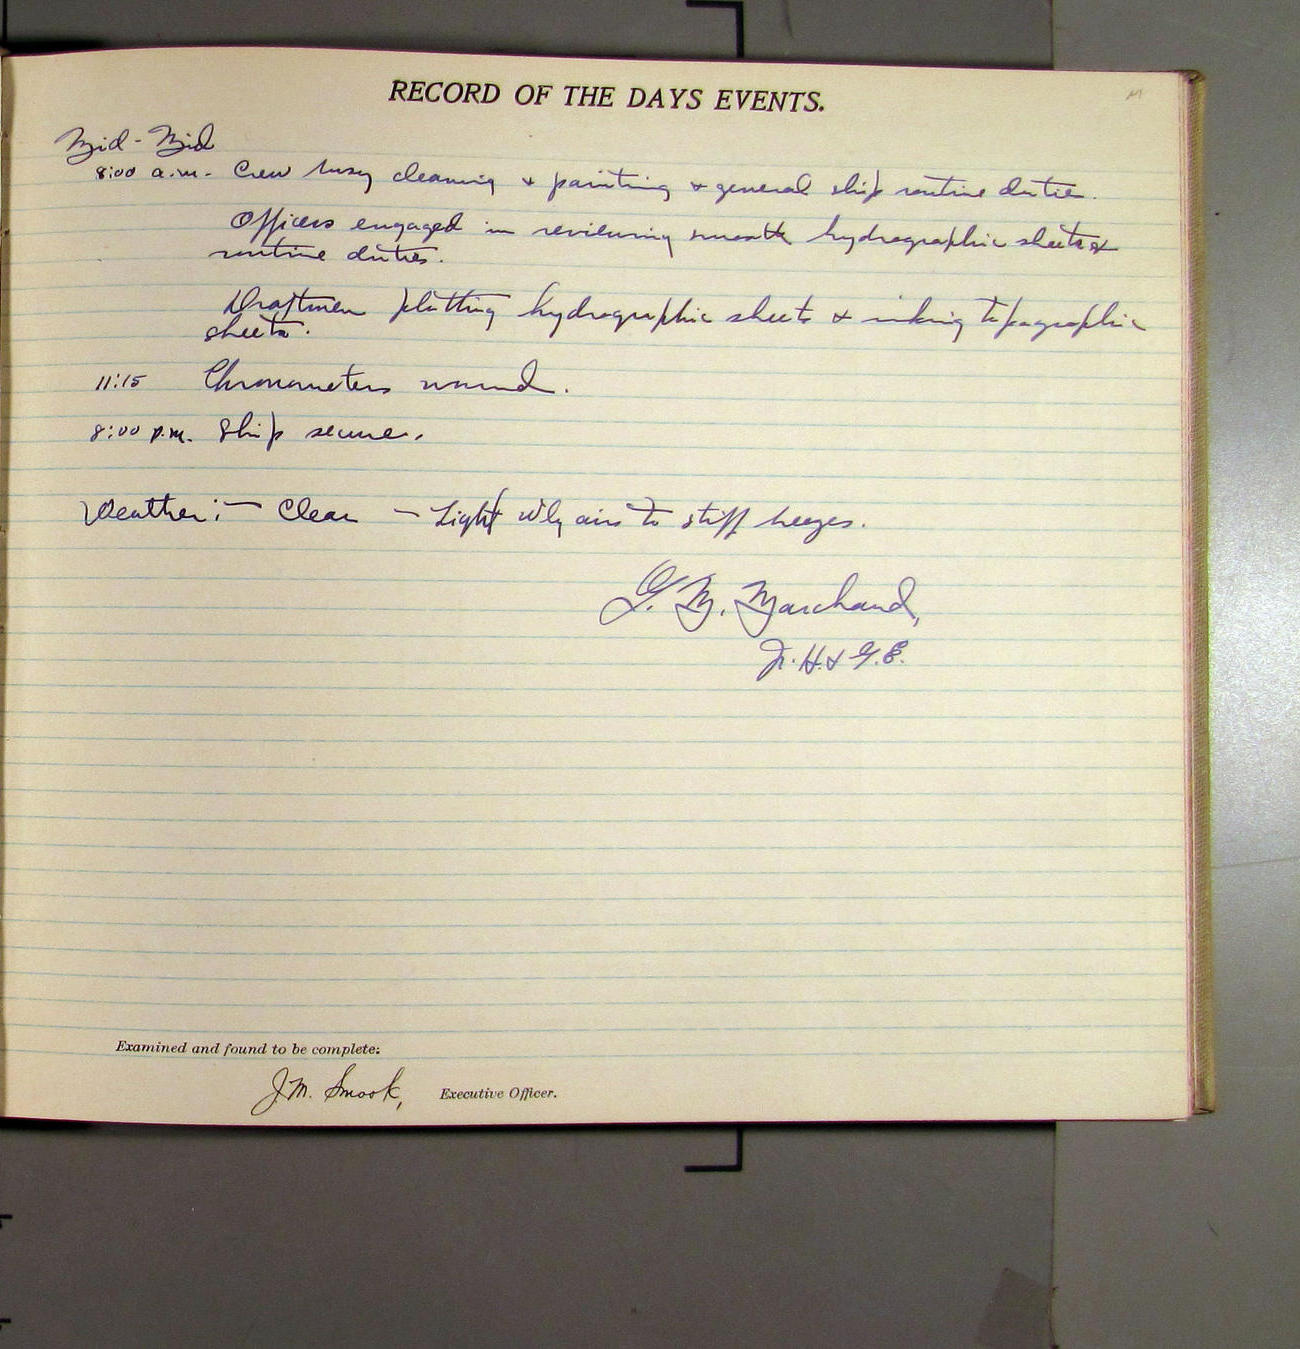 RECORD OF THE DAYS EVENTS.
Mid - Mid
8:00 a.m. - Crew busy cleaning & painting & general ship routine duties.
Officers engaged in reviewing smooth hydrographic sheets &
routine duties.
Draftmen plotting hydrographic sheets & inking topographic
sheets.
11:15 Chronometers wound.
8:00 p.m. Ship secure.
Weather:- Clear - Light W'ly airs to stiff breezes.
G. M. Marchand,
Jr. H. & G. E.
Examined and found to be complete:
J. M. Smook, Executive Officer.